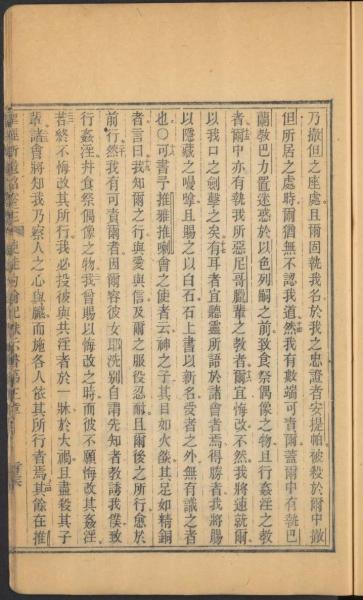 乃撒但之座處且爾固執我名於我之忠證者安提帕被殺於爾中撒
但所居之處時爾猶無不認我道然我有數端可責爾蓋爾中有執巴
蘭教巴力置迷惑於以色列嗣之前致食祭偶像之物且行姦淫之教
者爾中亦有執我所惡尼哥 輩之教者爾宜悔改不然我將速就爾
以我口之劍擊之矣有耳者宜聽靈所語於諸會者焉得勝者我將賜
以隱藏之嗎嗱且賜之以白石石上書以新名受者之外無有識之者
也〇可書予推雅推喇會之使者云神之子其目如火燄其足如精銅
者言曰我知爾之行與愛與信及爾之服役忍耐且爾後之所行愈於
前行然我有可責爾者因爾容彼女耶洗別自謂先知者教誘我僕致
行姦淫并食祭偶像之物我曾賜以悔改之時而彼不願悔改其姦淫
若終不悔改其所行我必投彼與共淫者於一牀於大禍且盡殺其子
輩諸會將知我乃察人之心與臟而施各人依其所行者焉其餘在推
聖經新遺詔全書 使徒約翰 默示書第二章